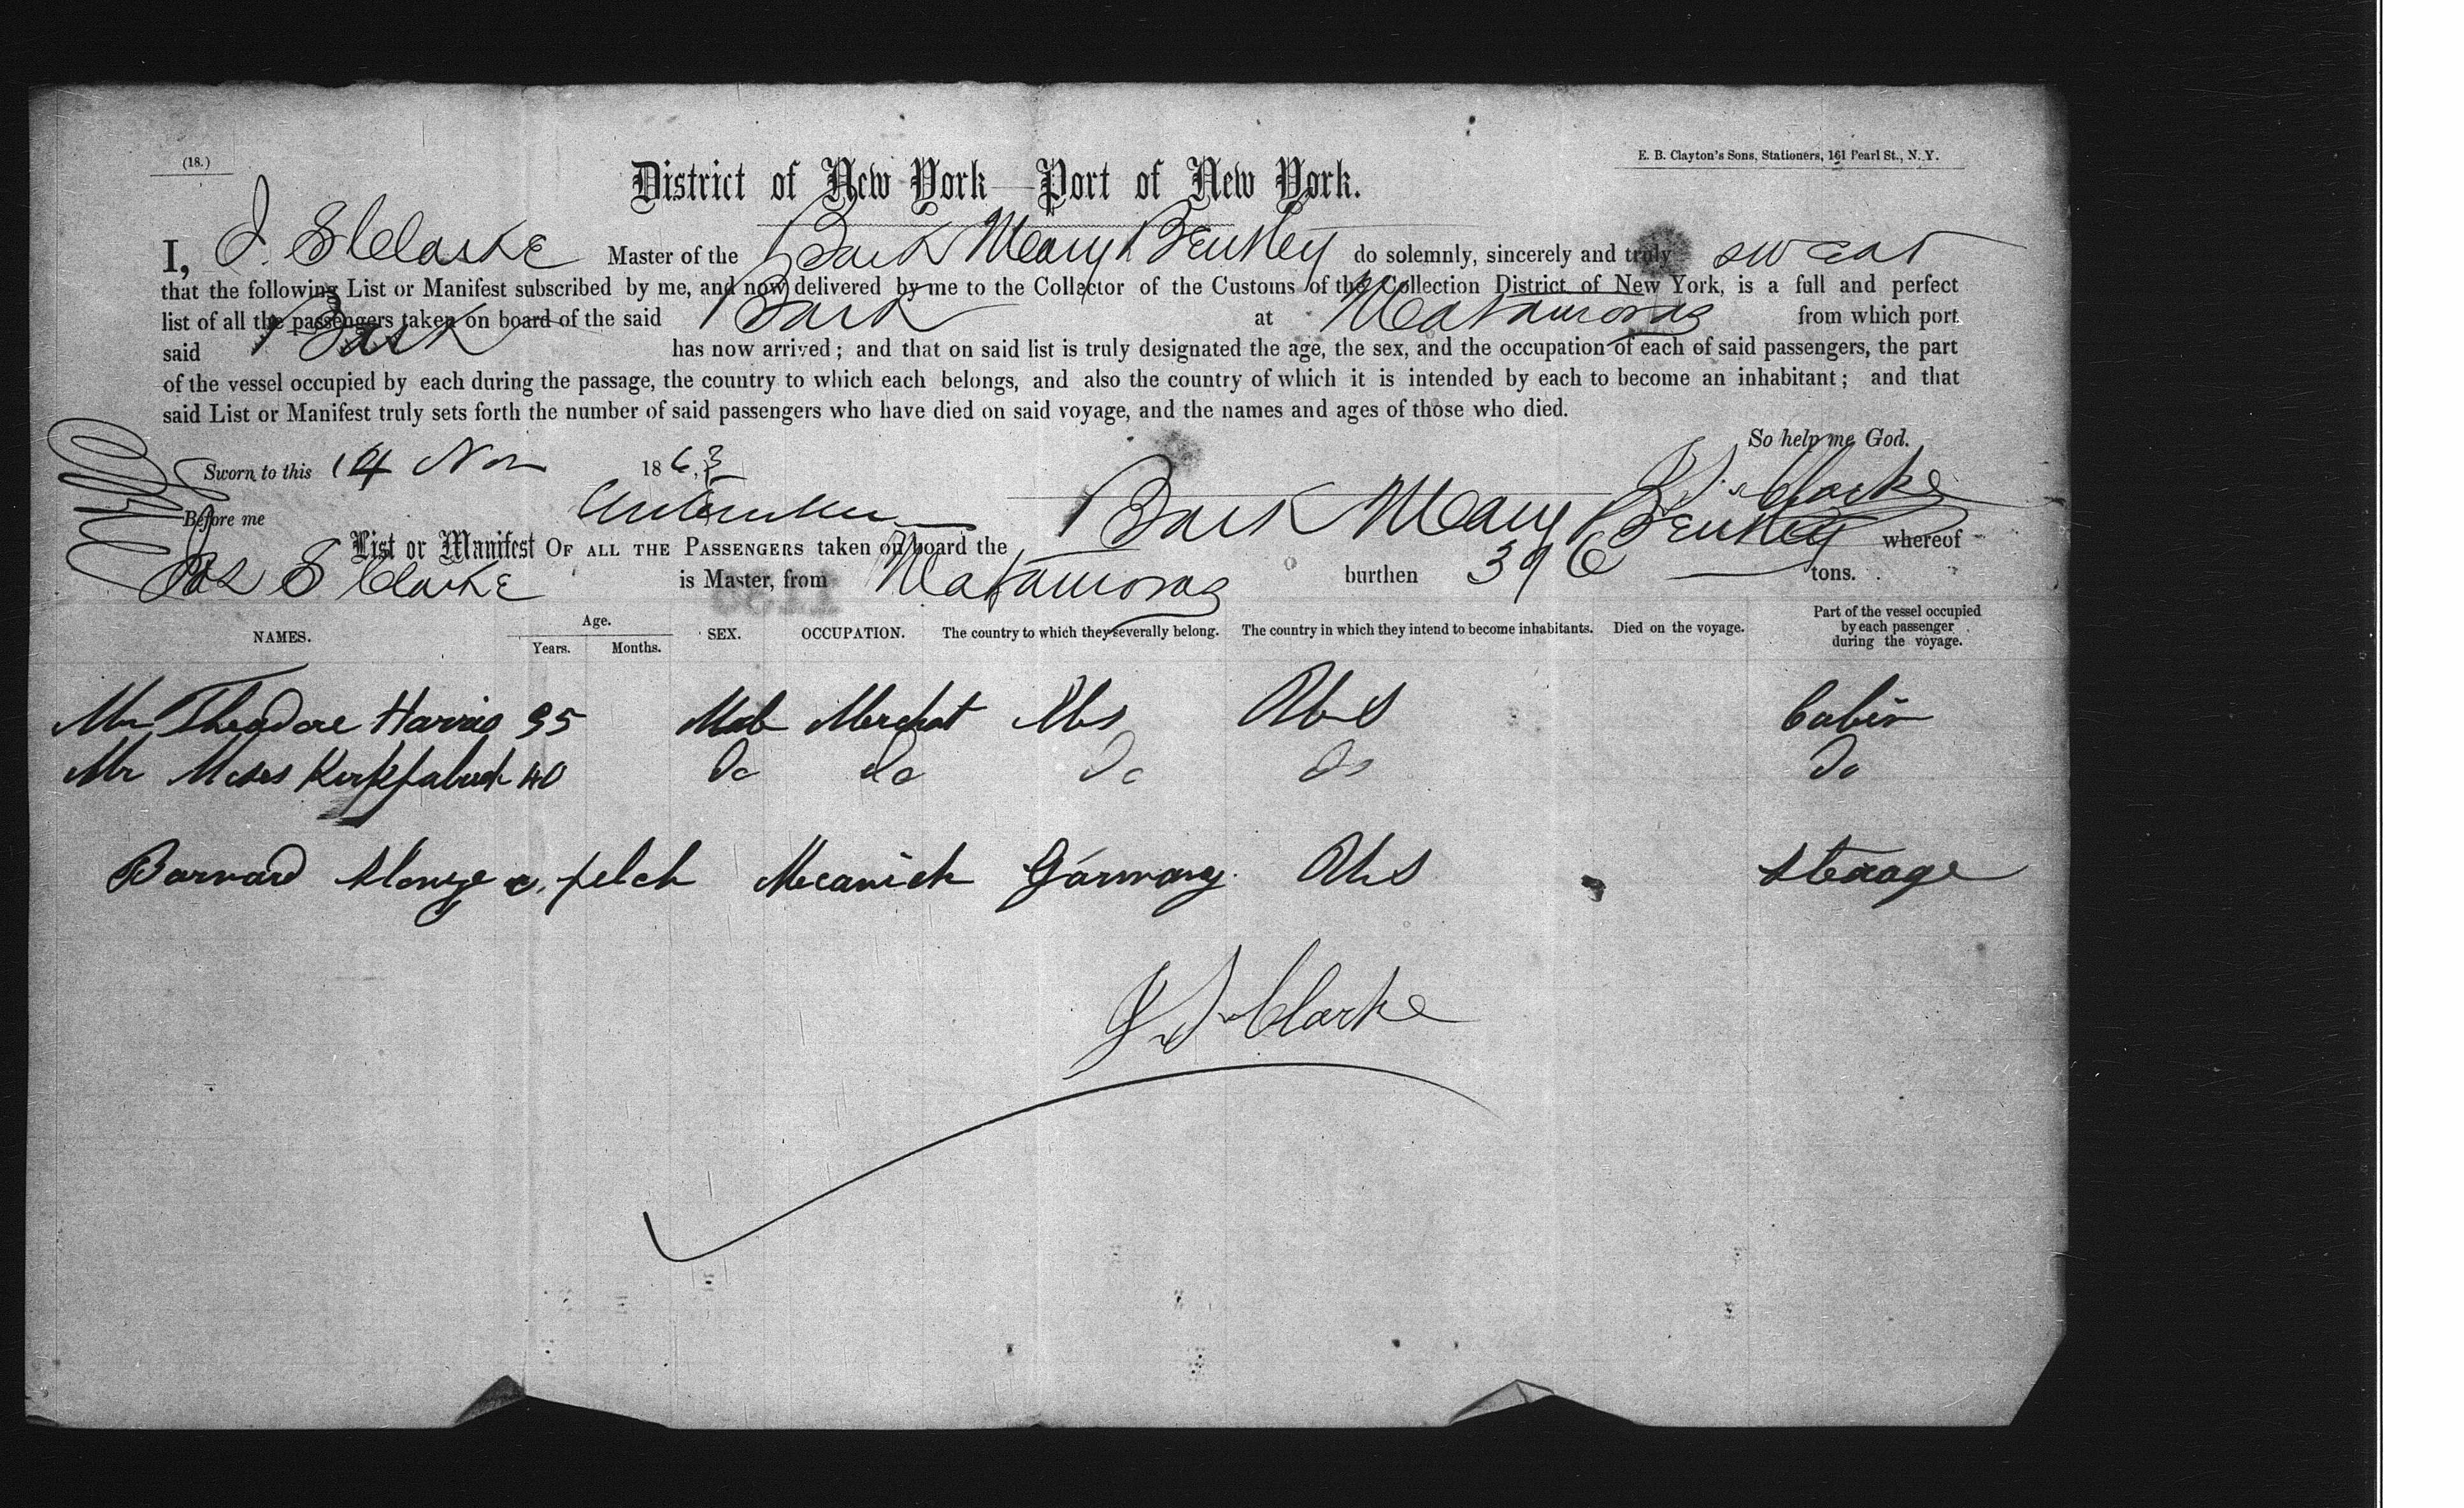 (18.)
E. B. Clayton's Sons, Stationers, 161 Pearl St., N. Y.
District of New York — Port of New York.
I, J. S Clarke Master of the Bark Mary Bentley do solemnly, sincerely and truly swear
that the following List or Manifest subscribed by me, and now delivered by me to the Collector of the Customs of the Collection District of New York, is a full and perfect
list of all the passengers taken on board of the said Bark at Matamoras from which port
said Bark has now arrived; and that on said list is truly designated the age, the sex, and the occupation of each of said passengers, the part
of the vessel occupied by each during the passage, the country to which each belongs, and also the country of which it is intended by each to become an inhabitant; and that
said List or Manifest truly sets forth the number of said passengers who have died on said voyage, and the names and ages of those who died.
So help me God.
Sworn to this 14 Nov 1863 J. S. Clarke
Before me
List or Manifest OF ALL THE PASSENGERS taken on board the Bark Mary Bentley whereof
Jas S Clarke is Master, from Matamoras burthen 396 tons.
NAMES. Age. Years. Months. SEX. OCCUPATION. The country to which they severally belong. The country in which they intend to become inhabitants. Died on the voyage. Part of the vessel occupied by each passenger during the voyage.
Mr Theodore Harris 35 Male Merchat Cabin
Mr Moses 40 Do do Do Do Do
Barnard Mecanick Garmany Sterage
J. S. Clarke